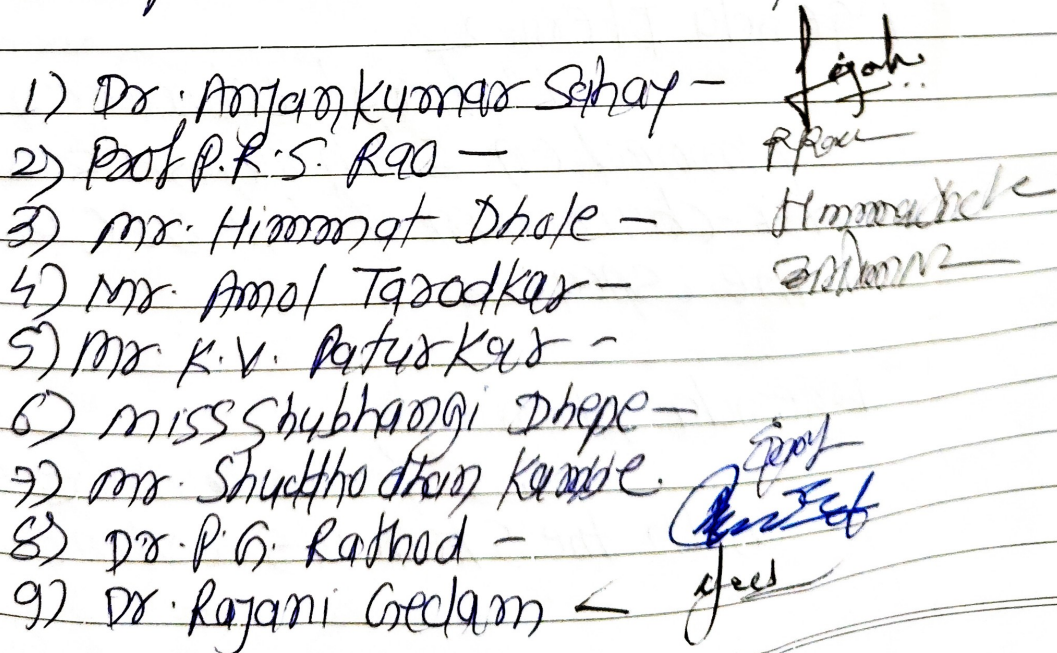 1) Dr. Anjankumar Sahay -
2) Prof P.R.S. Rao -
3) Mr. Himmat Dhole -
4) Mr. Amol Tarodkar -
5) Mr. K.V. Paturkar -
6) Miss Shubhangi Dhepe -
7) Mr. Shuddhodhan Kamble.
8) Dr. P.G. Rathod -
9) Dr. Rajani Gedam -